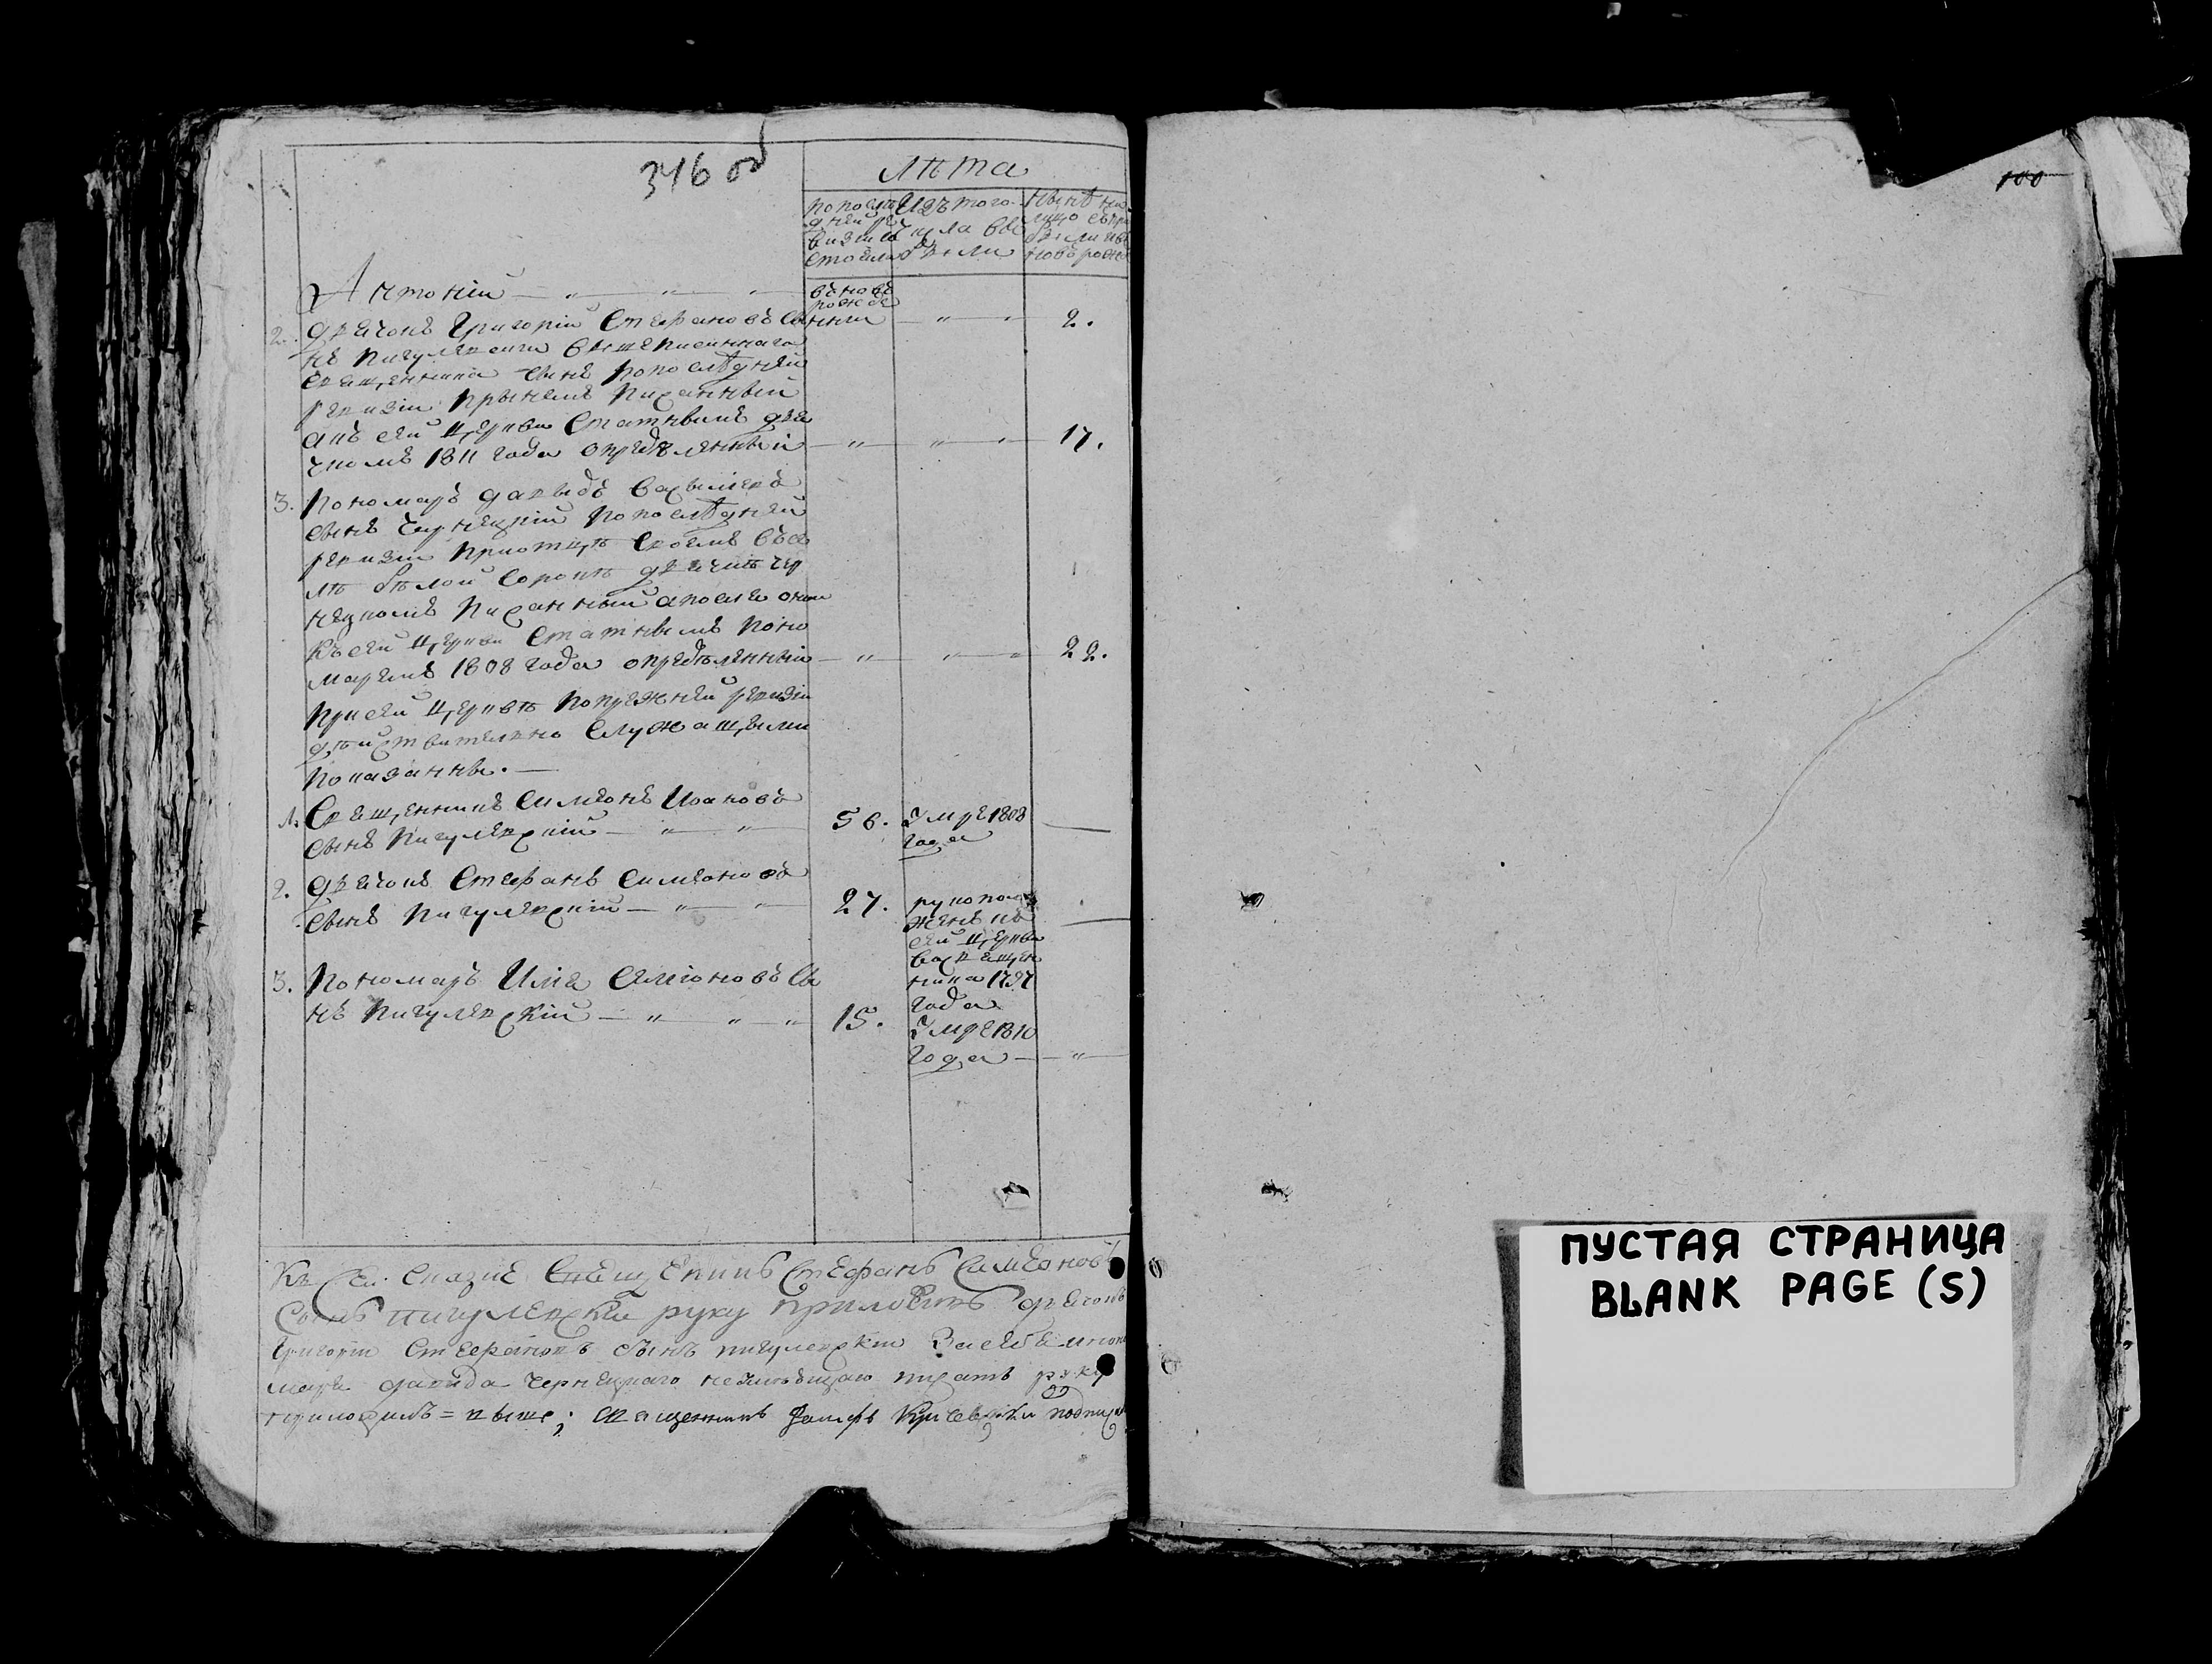 346 об
Лѣта
по послѣ
дней ре
визіи со
стояло
Изъ того
числа вы
были
Нынѣ на
лицо съ при
были и въ
новорожде
Антоній
въ ново
рожде
нныи
2.
2. Дьячокъ Григорій Стефановъ сы
нъ Пигулевскій вышеписаннаго
священника сынъ по послѣдней
ревизіи при немъ писанный
а къ сей церкви статнымъ дья
чкомъ 1811 года опредѣленный
17.
3. Пономарь Давыдъ Васильевъ
сынъ Чернецкій по послѣдней
ревизіи при отцѣ своемъ въ се
лѣ бѣлой сорокѣ дьячкѣ Чер
нецкомъ писанный а послѣ оной
къ сей церкви статнымъ поно
маремъ 1808 года опредѣленный
22.
При сей церквѣ по прежней ревизіи
дѣйствительно служащыми
показанны.
1. Священникъ Симеонъ Ивановъ
сынъ Пигулевскій
56.
Умре 1808
года
2. Дьячокъ Стефанъ Симеоновъ
сынъ Пигулевскій
27.
рукополо
женъ къ
сей церкви
во священ
ника 1797
года
3. Пономарь Илія Симіоновъ сы
нъ Пигулевскій
15.
Умре 1810
года
Къ сей сказке священникъ Стефанъ Симеоновъ
сынъ пигулевскій руку приложилъ дьячокъ
Григорій Стефановъ сынъ пигулевскій За себя и поно
маря давида Чернецкаго неумѣющаго писать руку
приложилъ = выше; священникъ подписа
100
ПУСТАЯ СТРАНИЦА
BLANK PAGE (S)